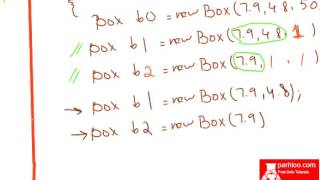 {
box b0 = new Box(7.9,4.8,50
// box b1 = new Box(7.9,4.8,1)
// box b2 = new Box(7.9,1,1
→ box b1 = new Box(7.9,4.8);
→ box b2 = new Box(7.9)
parhloo.com
Free Urdu Tutorials